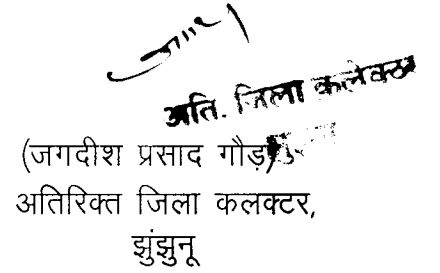 अति. जिला कलेक्टर
(जगदीश प्रसाद गौड़)
अतिरिक्त जिला कलक्टर,
झुंझुनू